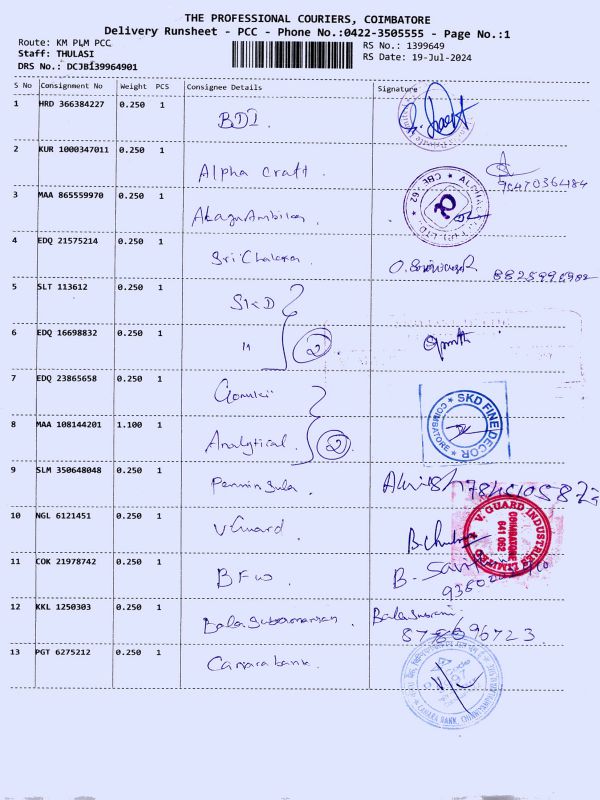 THE PROFESSIONAL COURIERS, COIMBATORE
Delivery Runsheet - PCC - Phone No.:0422-3505555 - Page No.:1
Route: KM PLM PCC
RS No.: 1399649
Staff: THULASI
RS Date: 19-Jul-2024
DRS No.: DCJBI39964901
S No Consignment No Weight PCS Consignee Details Signature
1 HRD 366384227 0.250 1 BDI
2 KUR 1000347011 0.250 1 Alpha Craft.
9047036484
3 MAA 865559970 0.250 1
4 EDQ 21575214 0.250 1
5 SLT 113612 0.250 1 SKD
6 EDQ 16698832 0.250 1 " 2
7 EDQ 23865658 0.250 1
8 MAA 108144201 1.100 1 Analytical. 2
SKD FINE DECOR
COIMBATORE
9 SLM 350648048 0.250 1
10 NGL 6121451 0.250 1 VGuard
V. GUARD INDUSTRIES LIMITED
COIMBATORE
641 062
11 COK 21978742 0.250 1 BFW.
12 KKL 1250303 0.250 1
13 PGT 6275212 0.250 1 Canara bank.
CANARA BANK,